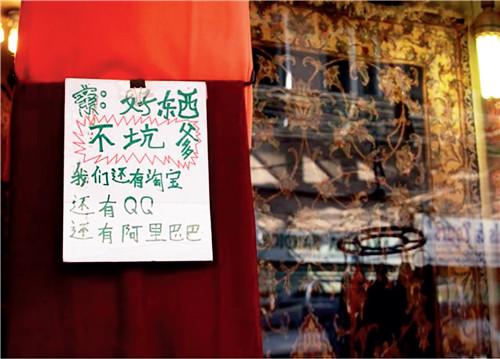 好东西
不坑爹
我们还有淘宝
还有QQ
还有阿里巴巴